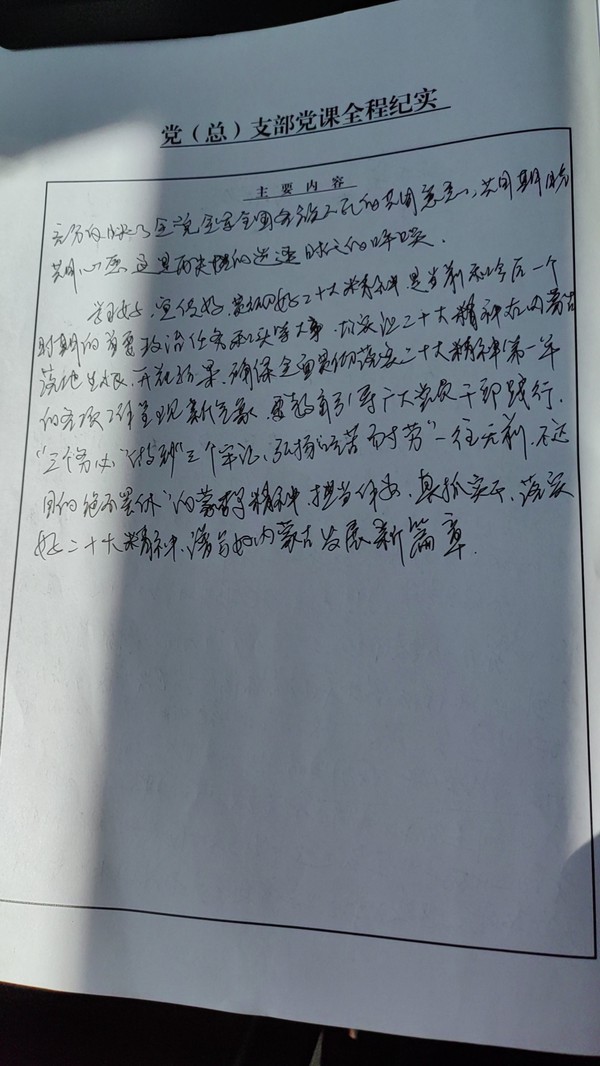 党（总）支部党课全程纪实
主要内容
充分反映了全党全军全国各族人民的共同意志，共同期盼
共同心愿 这是历史性的选择时代的呼唤.
学习好，宣传好，贯彻好二十大精神，是当前和今后一个
时期的首要政治任务和头等大事，切实让二十大精神在内蒙古
落地生根，开花结果，确保全面贯彻落实二十大精神第一年
的各项工作呈现新气象，要教育引导广大党员干部践行，
"三个务必""三个牢记，弘扬"吃苦耐劳"一往无前，不达
目的绝不罢休"的蒙古马精神，担当作为，真抓实干，落实
好二十大精神，谱写好内蒙古发展新篇章.